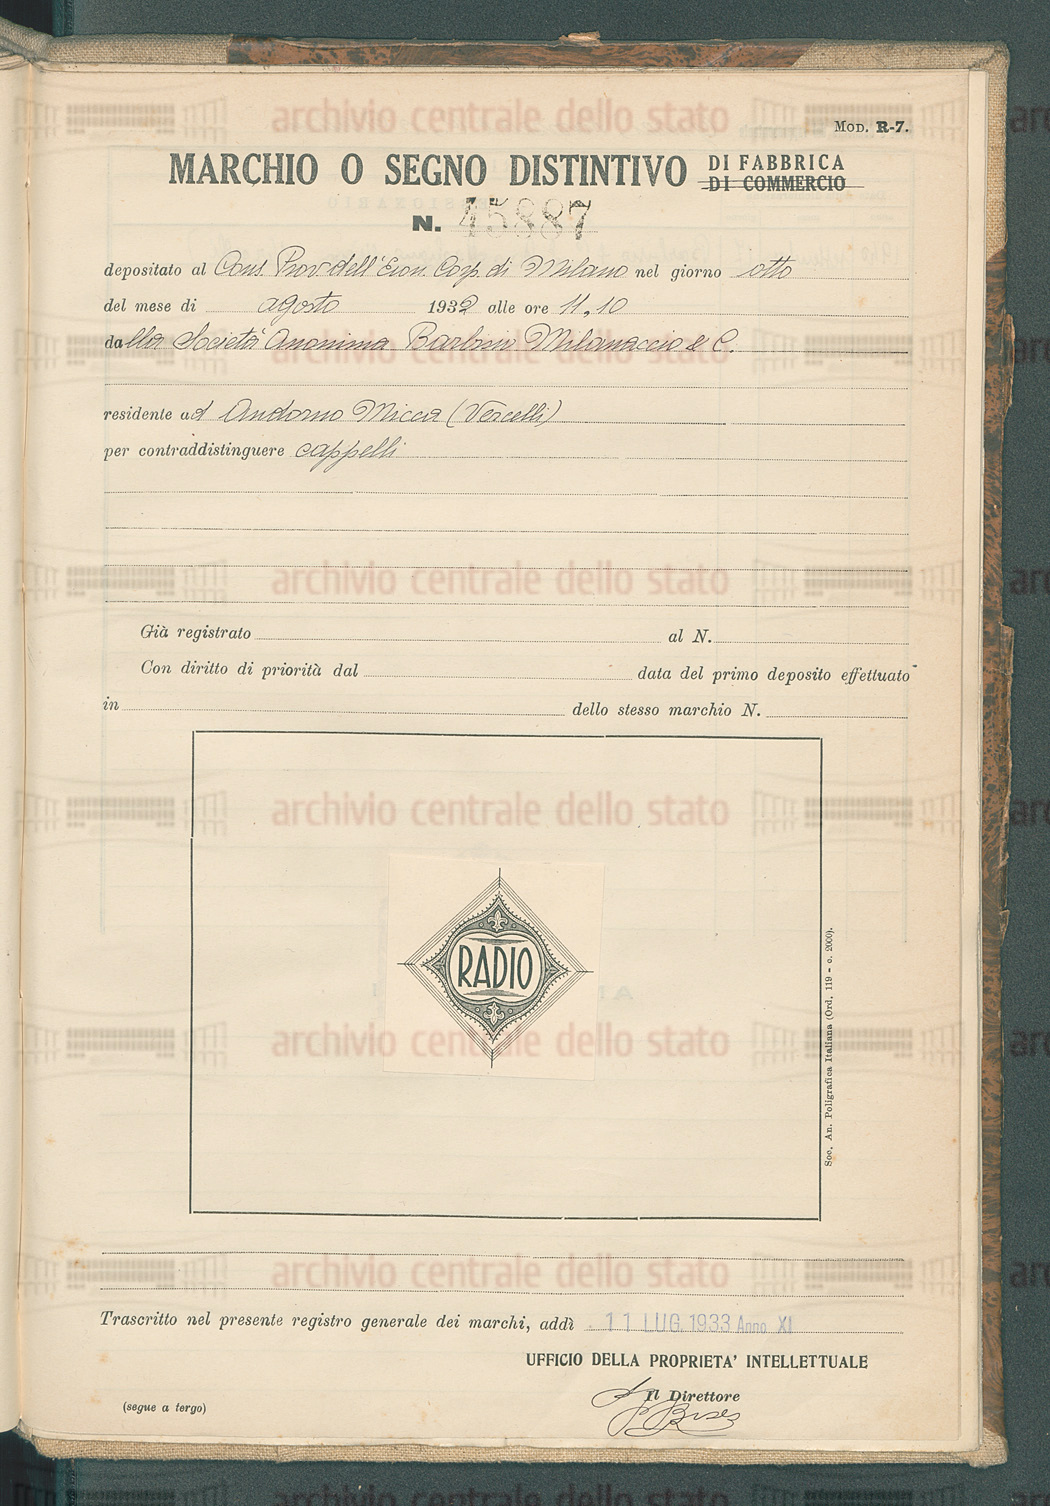 MOD. R-7.
MARCHIO O SEGNO DISTINTIVO DI FABBRICA
DI COMMERCIO
N. 45887
depositato al Cons. Prov. dell'Econ. Corp. di Milano nel giorno otto
del mese di agosto 1932 alle ore 11,10
dalla Società Anonima Barbisio Milanaccio & C.
residente ad Andorno Micca (Vercelli)
per contraddistinguere cappelli
Già registrato al N.
Con diritto di priorità dal data del primo deposito effettuato
in dello stesso marchio N.
RADIO
Soc. An. Poligrafica Italiana (Ord. 119 - c. 2000).
Trascritto nel presente registro generale dei marchi, addì 11 LUG. 1933 Anno XI
UFFICIO DELLA PROPRIETA' INTELLETTUALE
Il Direttore
(segue a tergo)
archivio centrale dello stato